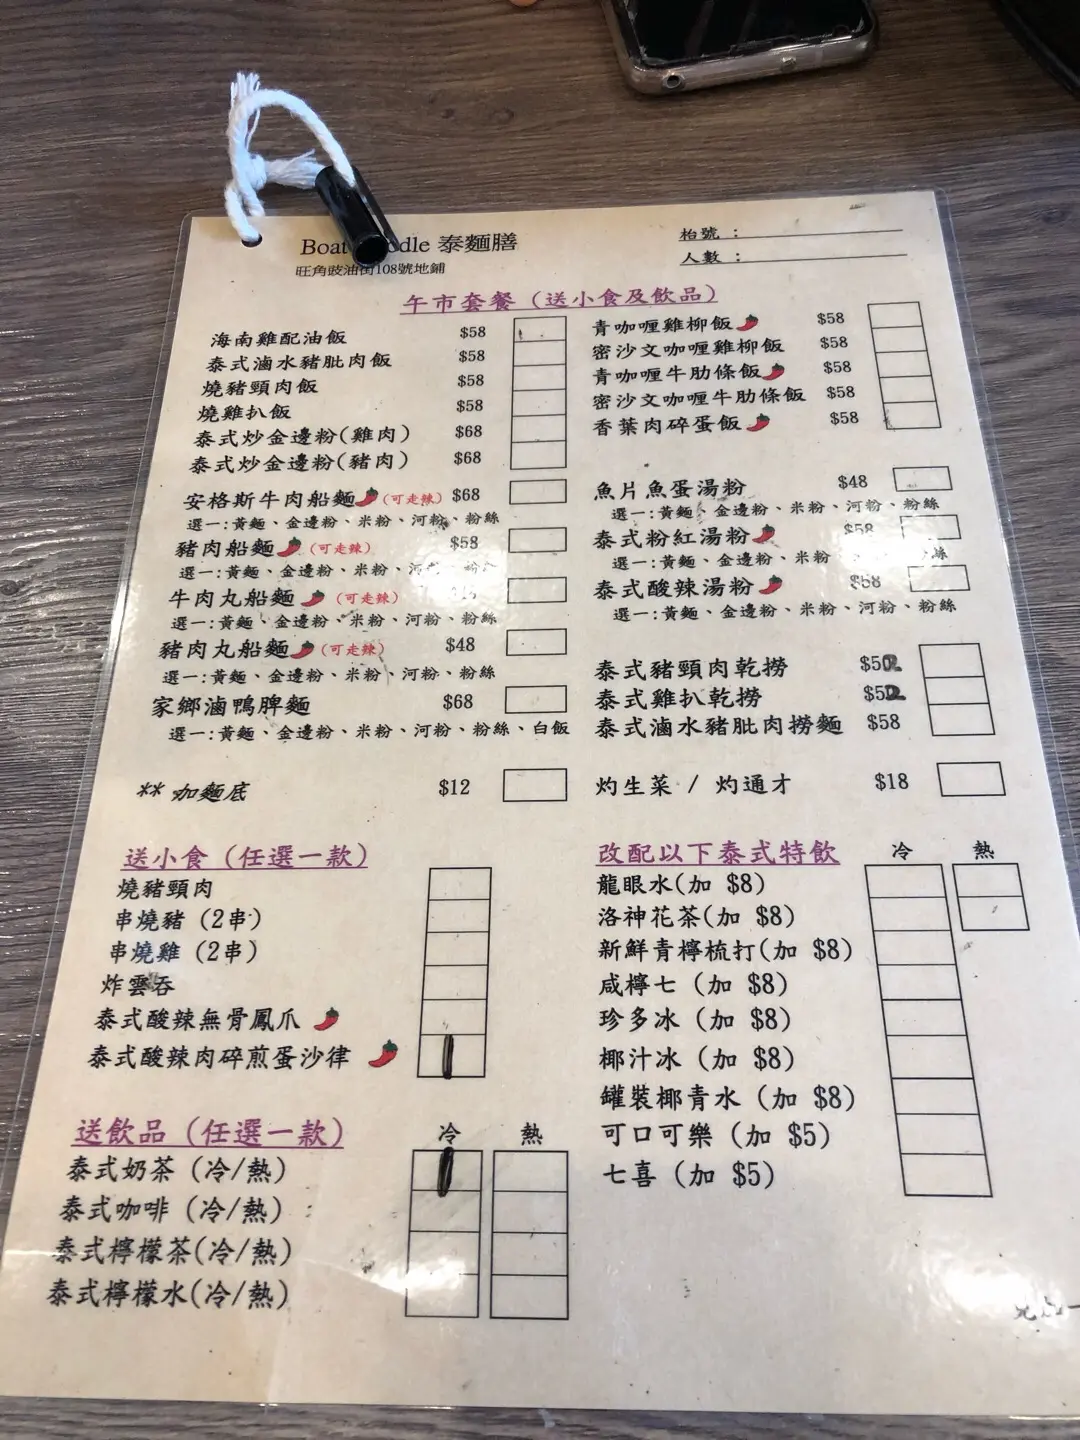 Boat dle 泰麵膳
旺角豉油街108號地鋪
枱號：
人數：
午市套餐（送小食及飲品）
海南雞配油飯 $58
泰式滷水豬肶肉飯 $58
燒豬頸肉飯 $58
燒雞扒飯 $58
泰式炒金邊粉(雞肉) $68
泰式炒金邊粉(豬肉) $68
安格斯牛肉船麵 (可走辣) $68
選一:黃麵、金邊粉、米粉、河粉、粉絲
豬肉船麵 (可走辣) $58
選一:黃麵、金邊粉、米粉、
牛肉丸船麵 (可走辣)
選一:黃麵、金邊粉、米粉、河粉、粉絲
豬肉丸船麵 (可走辣) $48
選一:黃麵、金邊粉、米粉、河粉、粉絲
家鄉滷鴨脾麵 $68
選一:黃麵、金邊粉、米粉、河粉、粉絲、白飯
** 加麵底 $12
青咖喱雞柳飯 $58
密沙文咖喱雞柳飯 $58
青咖喱牛肋條飯 $58
密沙文咖喱牛肋條飯 $58
香葉肉碎蛋飯 $58
魚片魚蛋湯粉 $48
選一:黃麵、金邊粉、米粉、河粉、粉絲
泰式粉紅湯粉 $58
選一:黃麵、金邊粉、米粉
泰式酸辣湯粉 $58
選一:黃麵、金邊粉、米粉、河粉、粉絲
泰式豬頸肉乾撈
泰式雞扒乾撈
泰式滷水豬肶肉撈麵 $58
灼生菜 / 灼通才 $18
送小食（任選一款）
燒豬頸肉
串燒豬 (2串)
串燒雞 (2串)
炸雲吞
泰式酸辣無骨鳳爪
泰式酸辣肉碎煎蛋沙律
送飲品（任選一款）
冷 熱
泰式奶茶 (冷/熱)
泰式咖啡 (冷/熱)
泰式檸檬茶(冷/熱)
泰式檸檬水(冷/熱)
改配以下泰式特飲 冷 熱
龍眼水(加 $8)
洛神花茶(加 $8)
新鮮青檸梳打(加 $8)
咸檸七 (加 $8)
珍多冰 (加 $8)
椰汁冰 (加 $8)
罐裝椰青水 (加 $8)
可口可樂 (加 $5)
七喜 (加 $5)